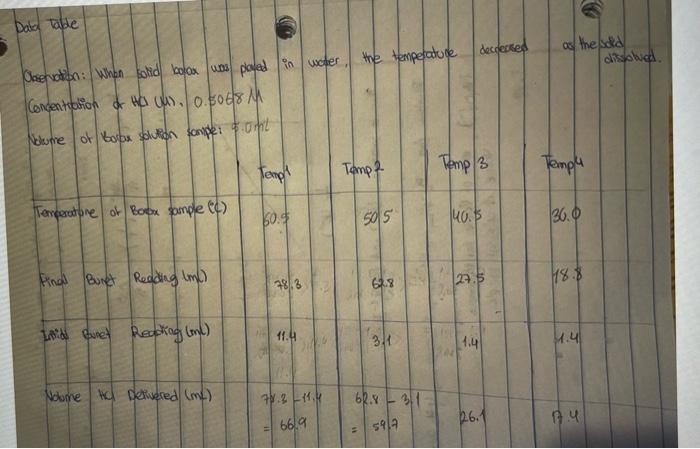 Data Table
Observation: When solid borax was placed in water, the temperature decreased as the solid dissolved.
Concentration of HCl (M): 0.5068 M
Volume of Borax solution sample: 5.0ml
Temp 1 Temp 2 Temp 3 Temp 4
Temperature of Borax sample (°C) 60.5 50.5 40.5 36.0
Final Buret Reading (mL) 78.3 62.8 27.5 18.8
Initial Buret Reading (mL) 11.4 3.1 1.4 1.4
Volume HCl Delivered (mL) 78.3 - 11.4 62.8 - 3.1
= 66.9 = 59.7 26.1 17.4